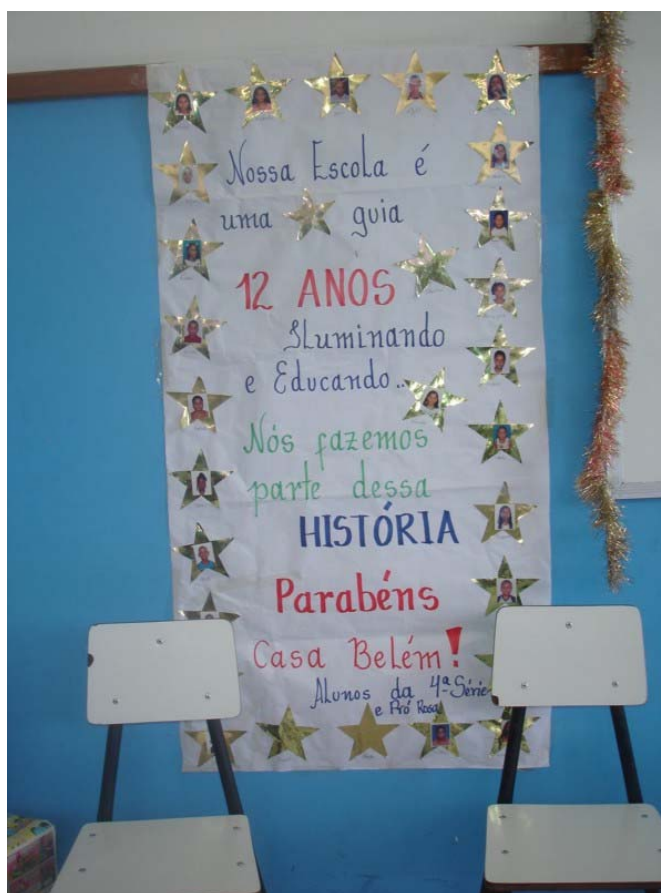 Nossa Escola é
uma guia
12 ANOS
Iluminando
e Educando...
Nós fazemos
parte dessa
HISTÓRIA
Parabéns
Casa Belém!
Alunos da 4ª Série
e Pró Rosa